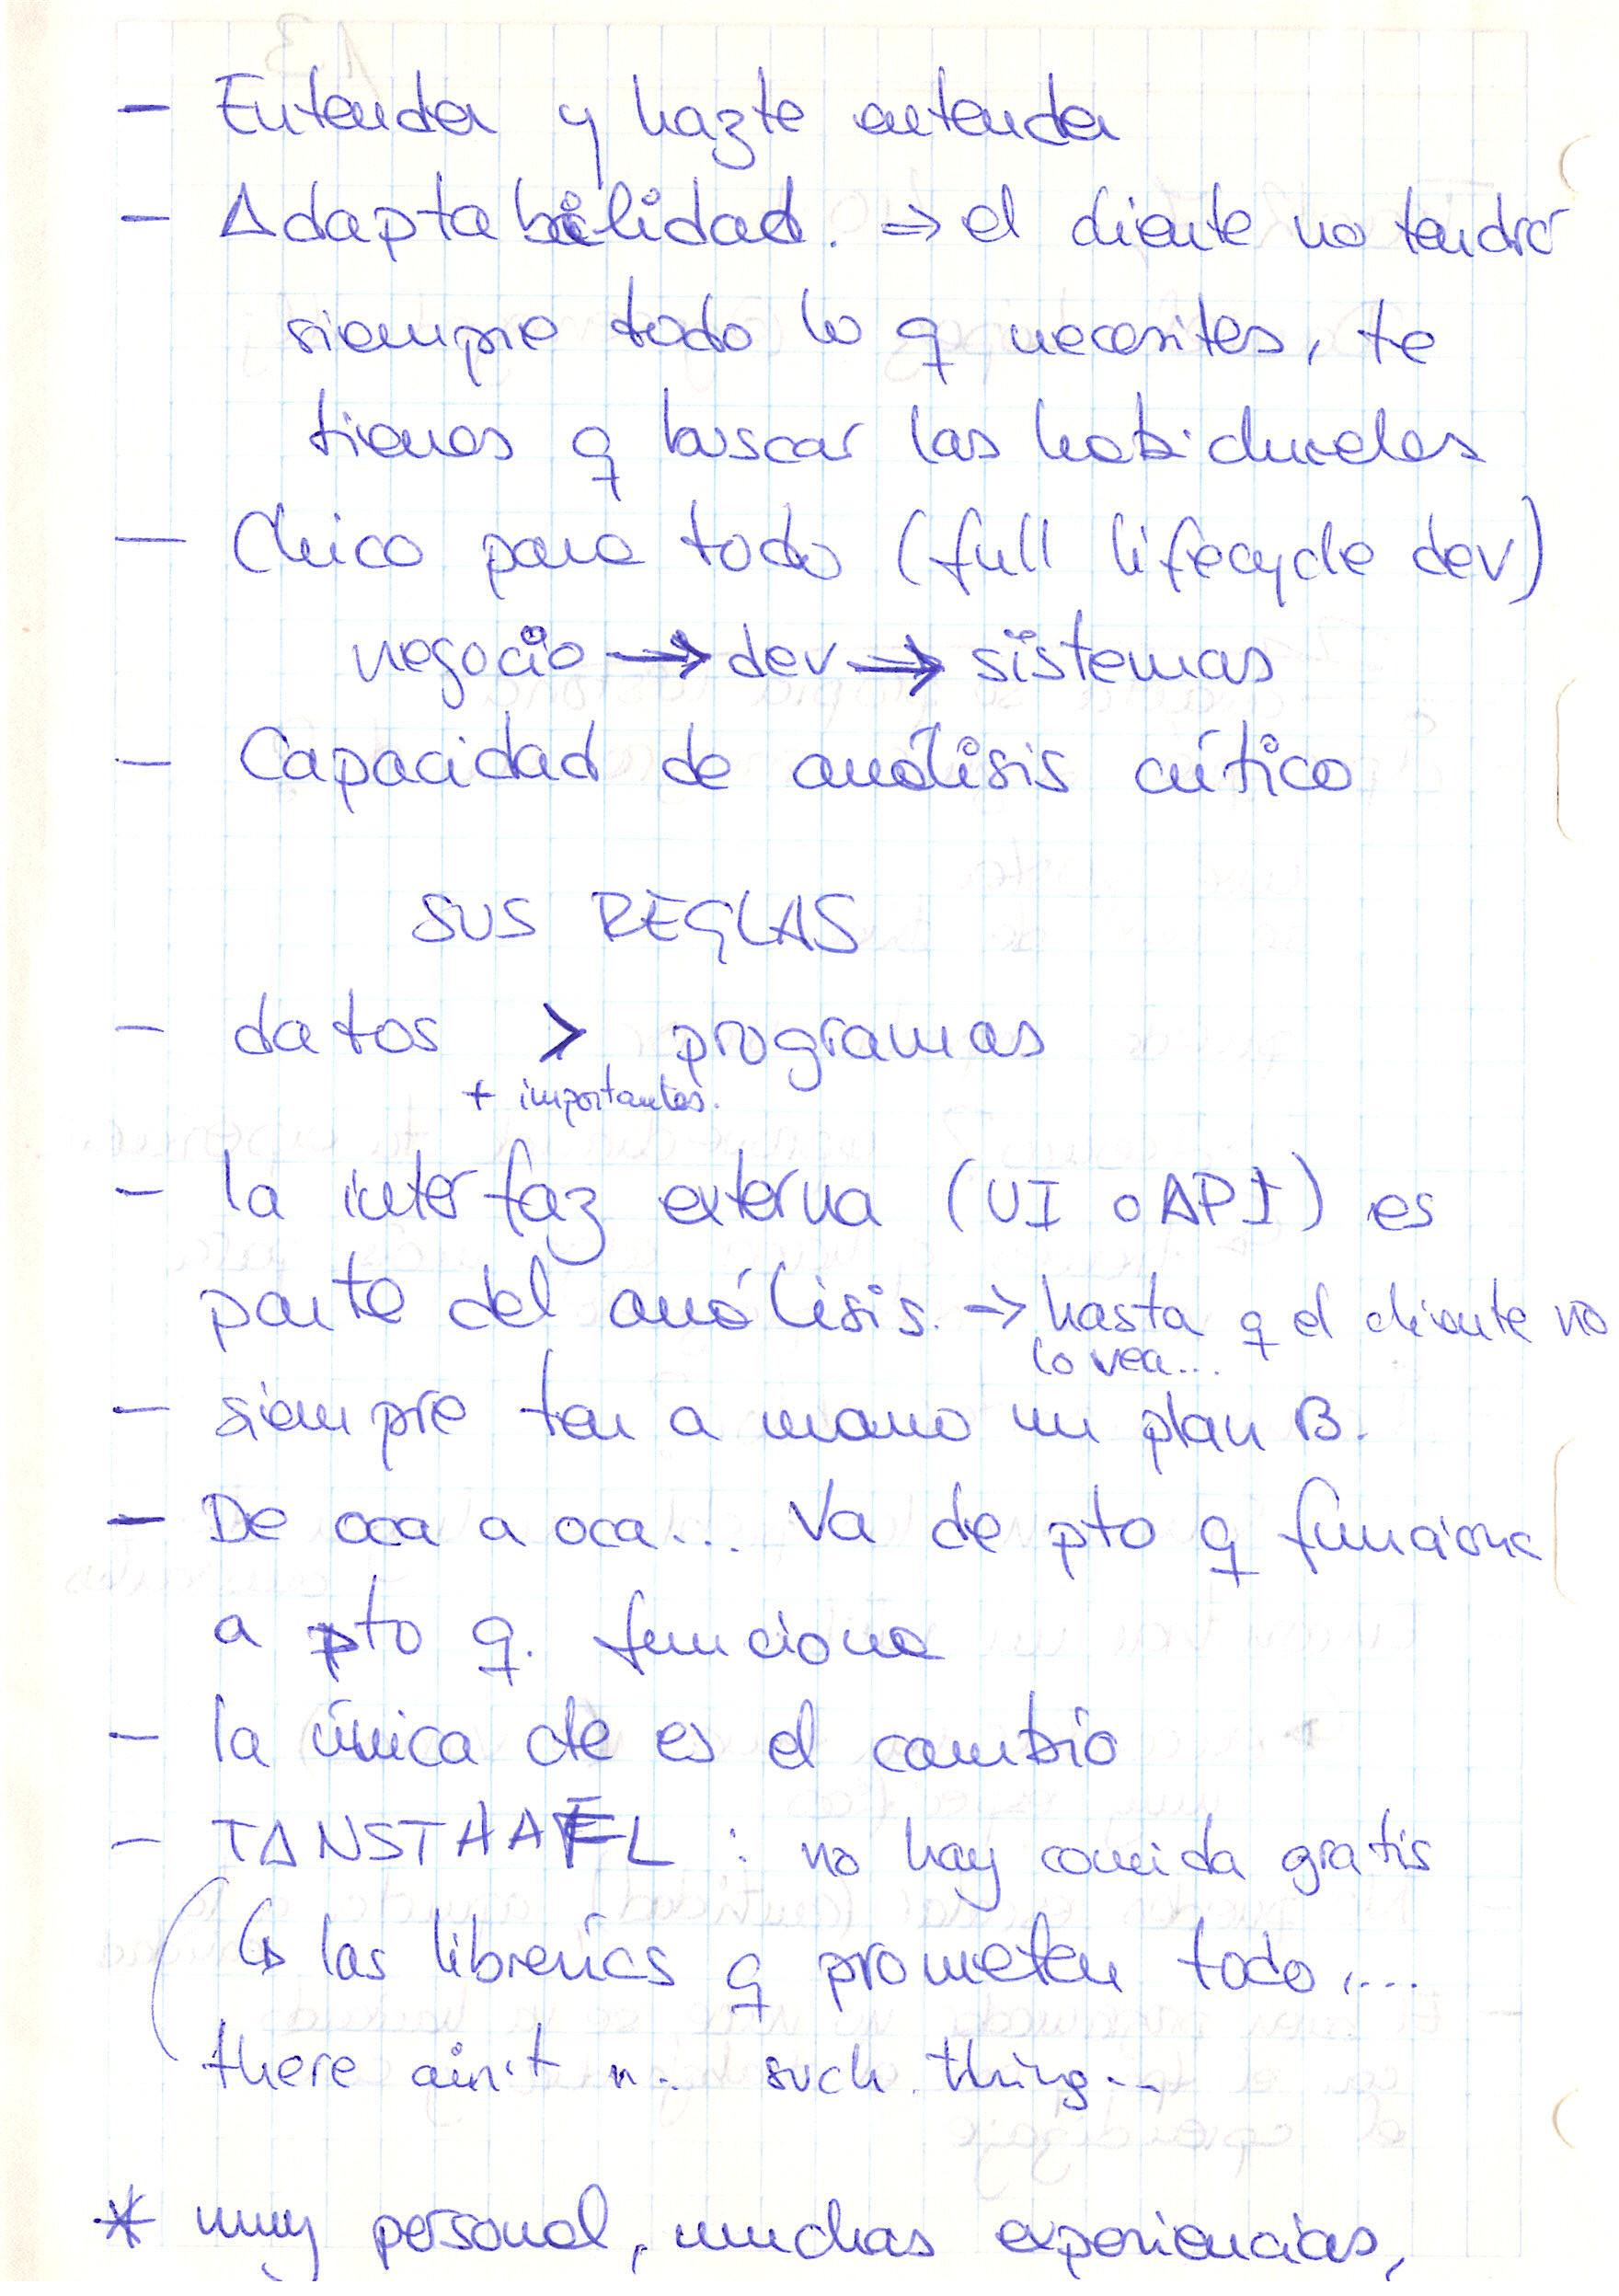 - Entender y hazte entender
- Adaptabilidad. ⇒ el cliente no tendrá
siempre todo lo q necesites, te
tienes q buscar las habichuelas
- Chico para todo (full lifecycle dev)
negocio → dev → sistemas
- Capacidad de análisis crítico
SUS REGLAS
- datos > programas
+ importantes.
- la interfaz externa (UI o API) es
parte del análisis. → hasta q el cliente no
lo vea...
- siempre ten a mano un plan B.
- De oca a oca... Va de pto q funciona
a pto q. funciona
- la única cte es el cambio
- TANSTHAFL : no hay comida gratis
↳ las librerías q prometen todo,...
there ain't n. such thing...
* muy personal, muchas experiencias,